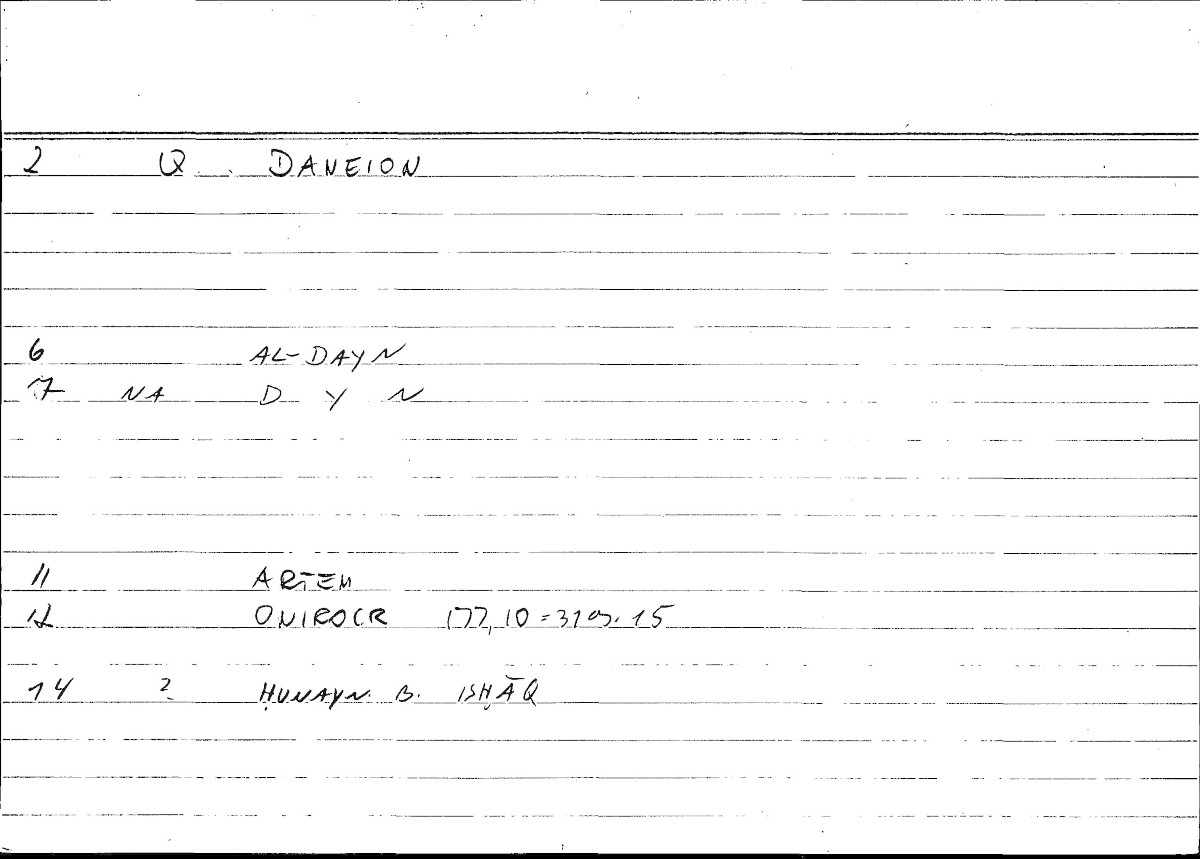 2 Q DANEION
6 AL-DAYN
7 NA D Y N
11 ARTEM
12 ONIROCR 177,10 = 319.15
14 2 ḤUNAYN B. ISḤĀQ